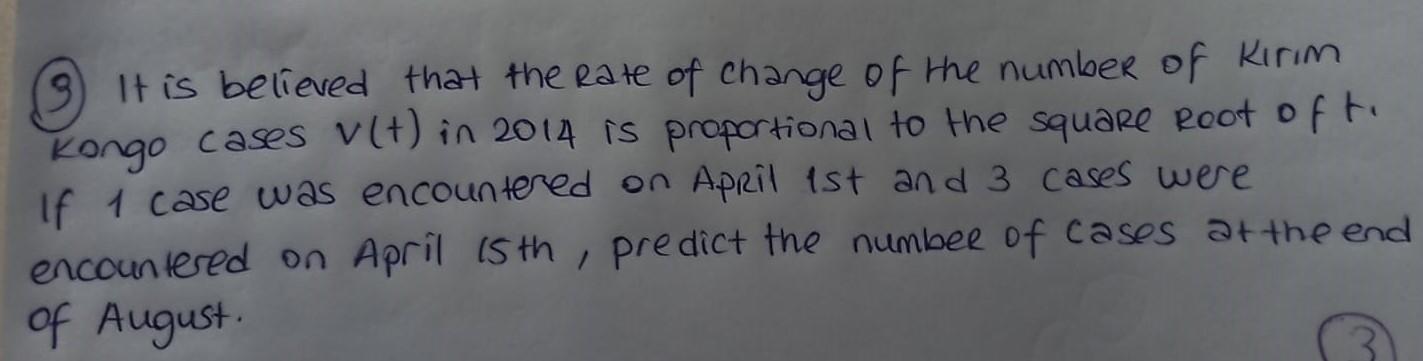 9 It is believed that the rate of change of the number of Kırım
Kongo cases V(t) in 2014 is proportional to the square root of t.
If 1 case was encountered on April 1st and 3 cases were
encountered on April 15th, predict the number of cases at the end
of August.
3